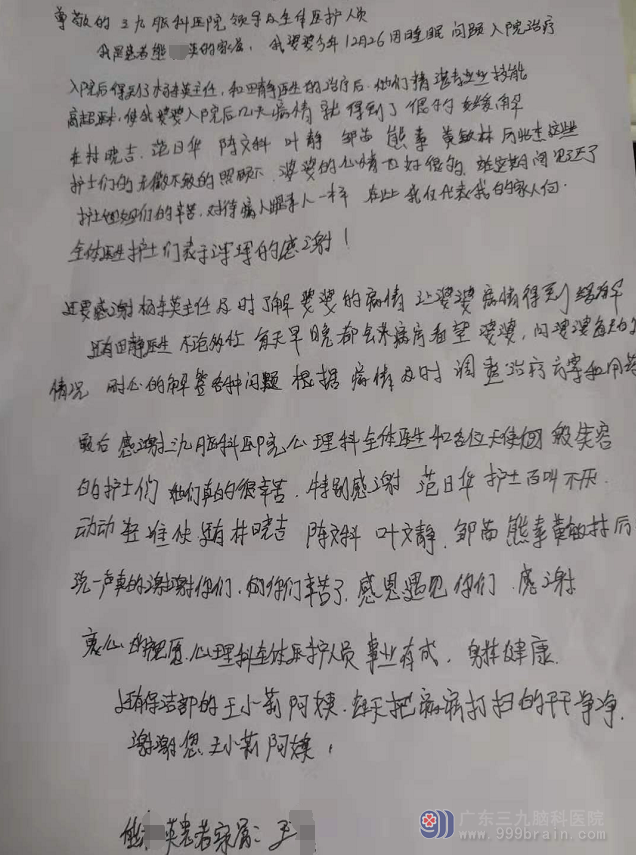 尊敬的三九脑科医院领导及全体医护人员
我是患者熊 英的家属，我婆婆今年12月26因睡眠问题入院治疗
入院后得到了杨李英主任，和田静医生的治疗后，他们精湛专业技能
高超医术，使我婆婆入院后几天病情就得到了很好的缓解
在林晓吉、范日华 陈文科 叶静 邹苗 熊李 黄敏林 这些
护士们的无微不致的照顾下，婆婆的心情也好很多，
护士他姐们的辛苦，对待病人跟亲人一样 在此我仅代表我的家人向
全体医生护士们表示深深的感谢！
还要感谢杨李英主任及时了解婆婆的病情 让婆婆病情得到缓解
还有田静医生 不论多忙 每天早晚都会来病房看望婆婆，问婆婆每天的
情况 耐心的解答各种问题 根据病情及时调整治疗方案和用药
最后感谢三九脑科医院心理科全体医生和各位天使般笑容
的护士们 她们真的很辛苦，特别感谢 范日华护士百叫不厌
动动 还有林晓吉 陈文科 叶文静、邹苗 熊李 黄敏林后
说一声真的谢谢你们，你们辛苦了，感恩遇见你们 感谢
衷心的祝愿，心理科全体医护人员事业有成，身体健康．
还有保洁部的王小莉阿姨，每天把病房打扫的干干净净．
谢谢您，王小莉阿姨，
熊 英患者家属：王
广东三九脑科医院
www.999brain.com